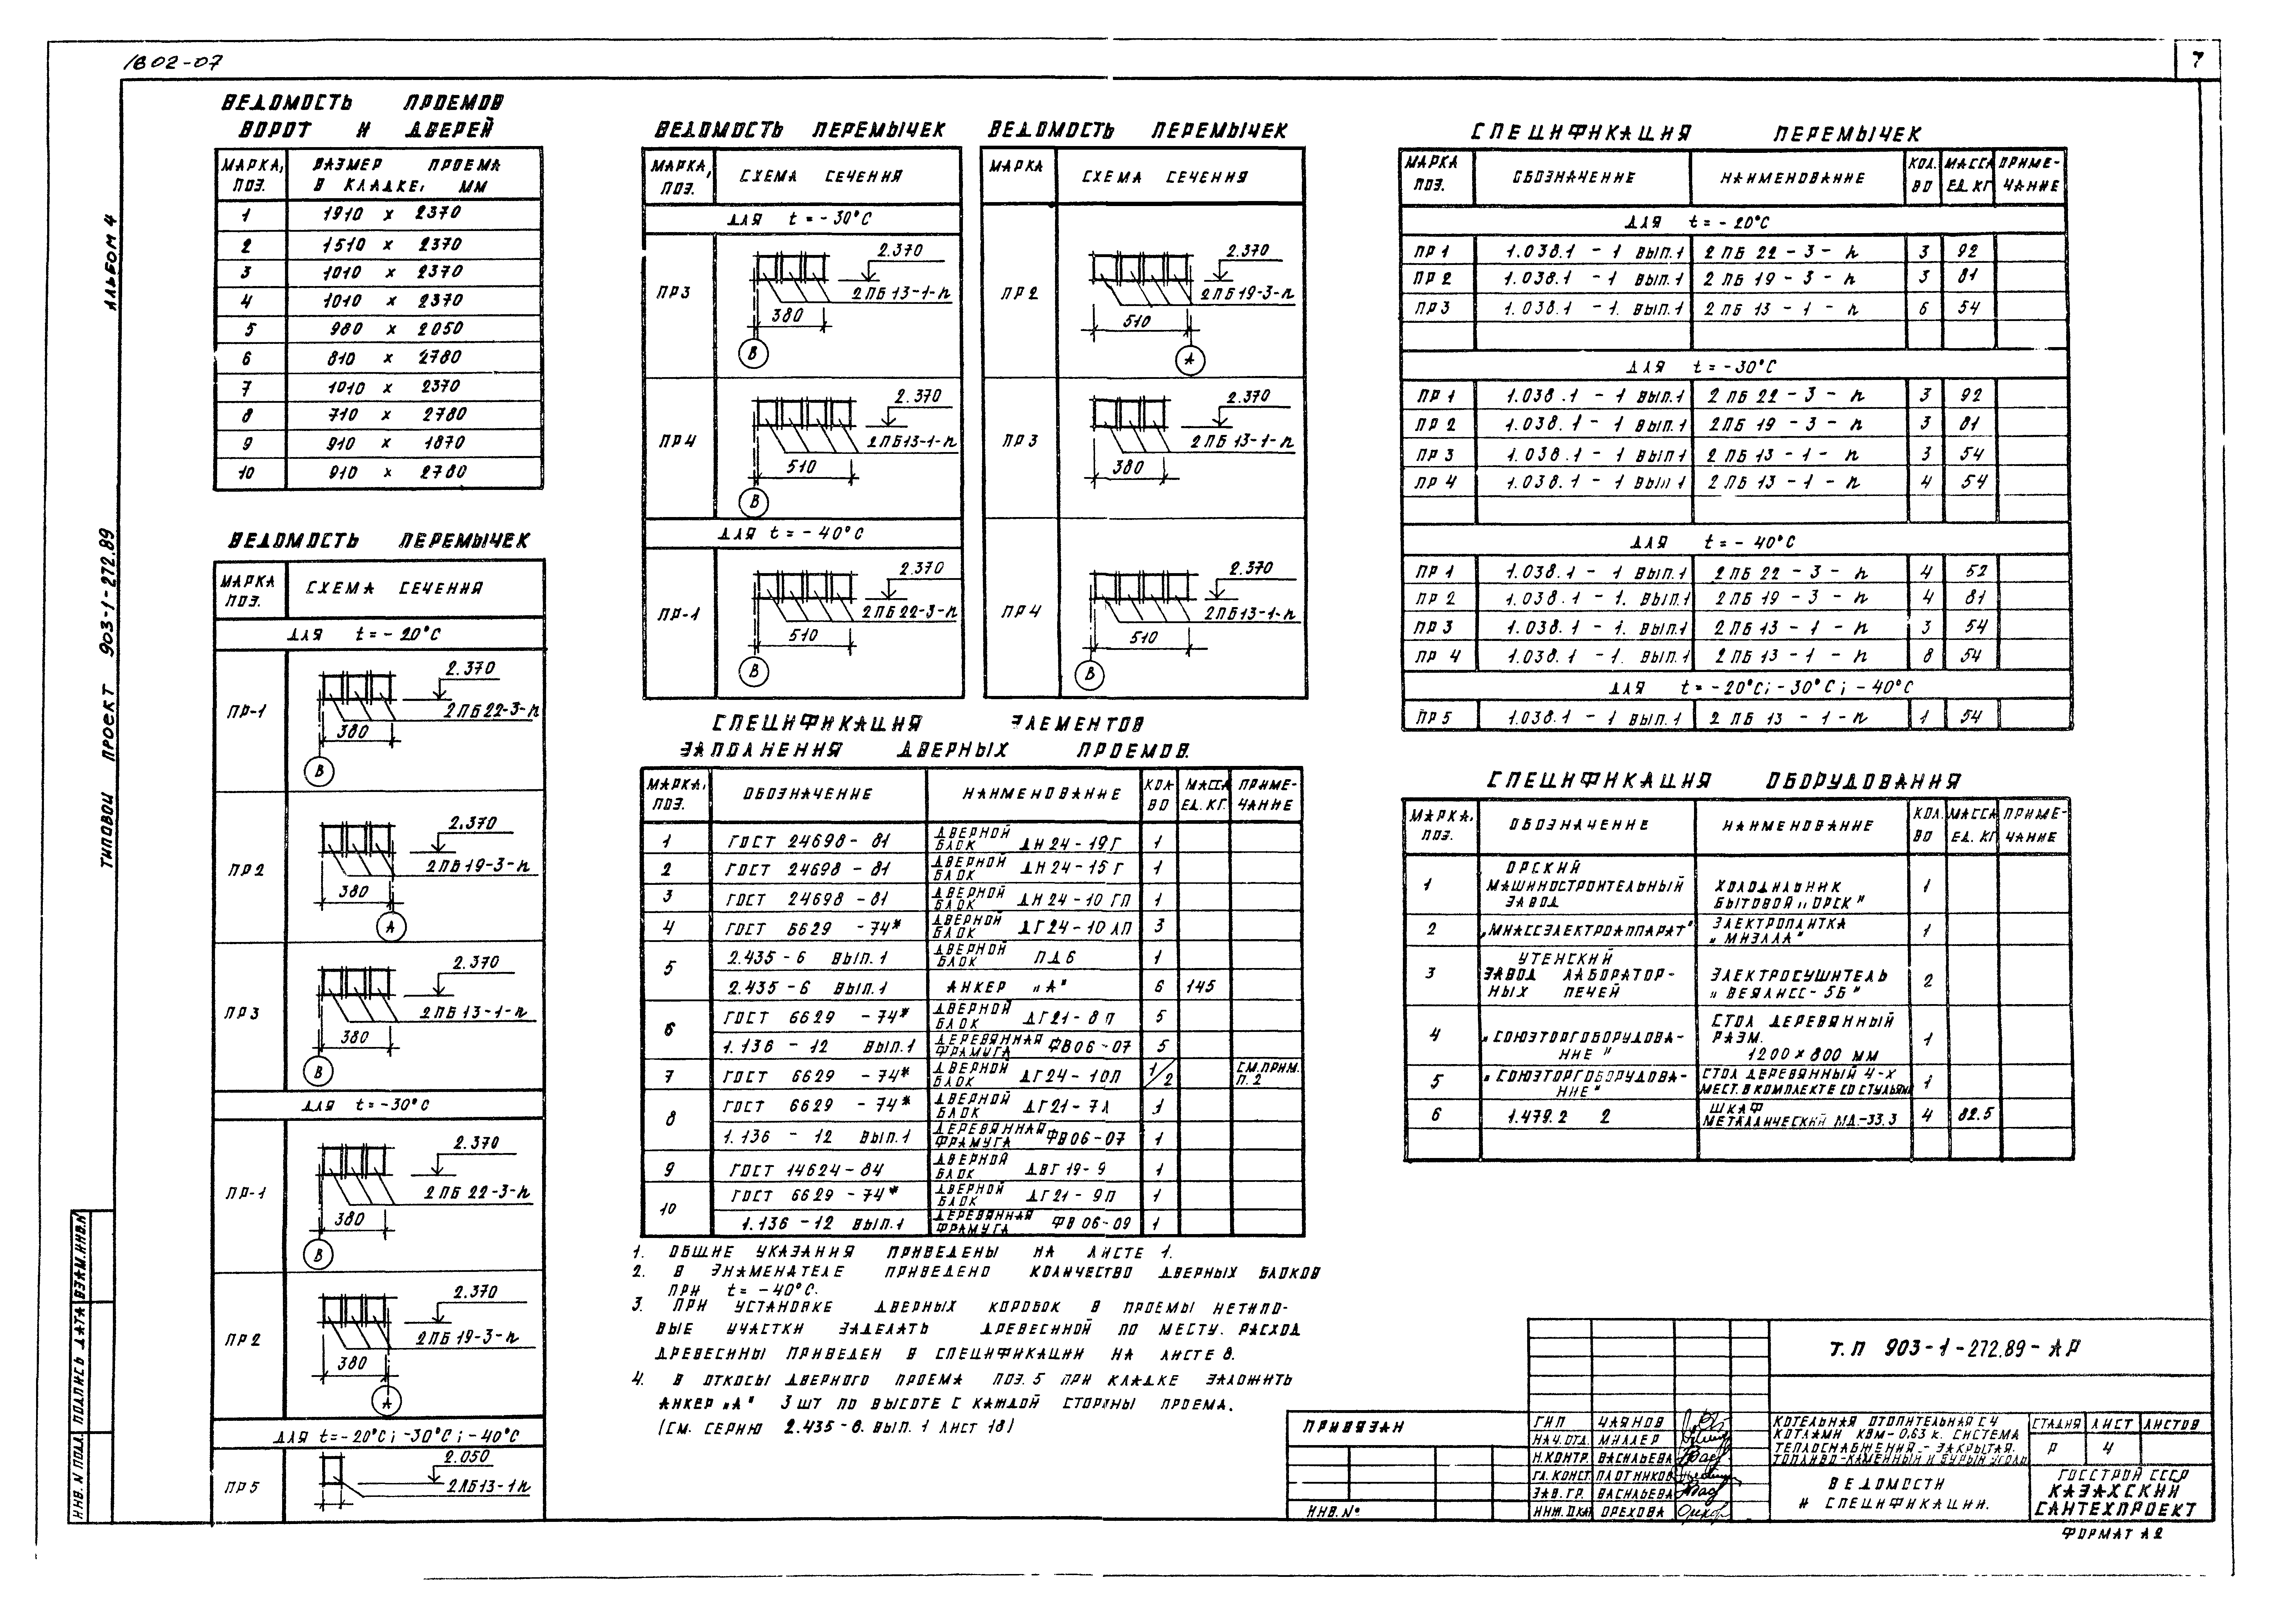 1802-07
7
АЛЬБОМ 4
ТИПОВОЙ ПРОЕКТ 903-1-272.89
ВЕДОМОСТЬ ПРОЕМОВ
ВОРОТ И ДВЕРЕЙ
МАРКА, ПОЗ. РАЗМЕР ПРОЕМА В КЛАДКЕ, ММ
1 1910 х 2370
2 1510 х 2370
3 1010 х 2370
4 1010 х 2370
5 980 х 2050
6 810 х 2780
7 1010 х 2370
8 710 х 2780
9 910 х 1870
10 910 х 2780
ВЕДОМОСТЬ ПЕРЕМЫЧЕК
МАРКА ПОЗ. СХЕМА СЕЧЕНИЯ
ДЛЯ t = - 20°С
ПР-1 2.370 2 ПБ 22-3-п 380 В
ПР2 2.370 2 ПБ 19-3-п 380 А
ПР3 2.370 2 ПБ 13-1-п 380 В
ДЛЯ t = -30°С
ПР-1 2.370 2 ПБ 22-3-п 380 В
ПР2 2.370 2 ПБ 19-3-п 380 А
ДЛЯ t = -20°С; -30°С; -40°С
ПР5 2.050 2ПБ13-1п
ВЕДОМОСТЬ ПЕРЕМЫЧЕК
МАРКА, ПОЗ. СХЕМА СЕЧЕНИЯ
ДЛЯ t = - 30°С
ПР3 2.370 2 ПБ 13-1-п 380 В
ПР4 2.370 2ПБ13-1-п 510 В
ДЛЯ t = - 40°С
ПР-1 2.370 2ПБ 22-3-п 510 В
ВЕДОМОСТЬ ПЕРЕМЫЧЕК
МАРКА СХЕМА СЕЧЕНИЯ
ПР2 2.370 2 ПБ19-3-п 510 А
ПР3 2.370 2 ПБ 13-1-п 380
ПР4 2.370 2ПБ13-1-п 510 В
СПЕЦИФИКАЦИЯ ЭЛЕМЕНТОВ
ЗАПОЛНЕНИЯ ДВЕРНЫХ ПРОЕМОВ.
МАРКА, ПОЗ. ОБОЗНАЧЕНИЕ НАИМЕНОВАНИЕ КОЛ ВО МАССА ЕД. КГ. ПРИМЕ-ЧАНИЕ
1 ГОСТ 24698 - 81 ДВЕРНОЙ БЛОК ДН 24 - 19 Г 1
2 ГОСТ 24698 - 81 ДВЕРНОЙ БЛОК ДН 24 - 15 Г 1
3 ГОСТ 24698 - 81 ДВЕРНОЙ БЛОК ДН 24 - 10 ГП 1
4 ГОСТ 6629 - 74* ДВЕРНОЙ БЛОК ДГ 24 - 10 ЛП 3
5 2.435 - 6 ВЫП. 1 ДВЕРНОЙ БЛОК ПД 6 1
2.435 - 6 ВЫП. 1 АНКЕР „А" 6 145
6 ГОСТ 6629 - 74* ДВЕРНОЙ БЛОК ДГ21 - 8 П 5
1. 136 - 12 ВЫП. 1 ДЕРЕВЯННАЯ ФРАМУГА ФВ06 - 07 5
7 ГОСТ 6629 - 74* ДВЕРНОЙ БЛОК ДГ24 - 10П 1/2 СМ.ПРИМ. П. 2
8 ГОСТ 6629 - 74* ДВЕРНОЙ БЛОК ДГ21 - 7Л 1
1. 136 - 12 ВЫП. 1 ДЕРЕВЯННАЯ ФРАМУГА ФВ06-07 1
9 ГОСТ 14624 - 84 ДВЕРНОЙ БЛОК ДВГ 19 - 9 1
10 ГОСТ 6629 - 74* ДВЕРНОЙ БЛОК ДГ21 - 9П 1
1.136 - 12 ВЫП. 1 ДЕРЕВЯННАЯ ФРАМУГА ФВ 06-09 1
1. ОБЩИЕ УКАЗАНИЯ ПРИВЕДЕНЫ НА ЛИСТЕ 1.
2. В ЗНАМЕНАТЕЛЕ ПРИВЕДЕНО КОЛИЧЕСТВО ДВЕРНЫХ БЛОКОВ
ПРИ t = -40°С.
3. ПРИ УСТАНОВКЕ ДВЕРНЫХ КОРОБОК В ПРОЕМЫ НЕТИПО-
ВЫЕ УЧАСТКИ ЗАДЕЛАТЬ ДРЕВЕСИНОЙ ПО МЕСТУ. РАСХОД
ДРЕВЕСИНЫ ПРИВЕДЕН В СПЕЦИФИКАЦИИ НА ЛИСТЕ 8.
4. В ОТКОСЫ ДВЕРНОГО ПРОЕМА ПОЗ. 5 ПРИ КЛАДКЕ ЗАЛОЖИТЬ
АНКЕР „А" 3 ШТ ПО ВЫСОТЕ С КАЖДОЙ СТОРОНЫ ПРОЕМА.
(СМ. СЕРИЮ 2.435-6. ВЫП. 1 ЛИСТ 18)
СПЕЦИФИКАЦИЯ ПЕРЕМЫЧЕК
МАРКА ПОЗ. ОБОЗНАЧЕНИЕ НАИМЕНОВАНИЕ КОЛ. ВО МАССА ЕД. КГ ПРИМЕ-ЧАНИЕ
ДЛЯ t = - 20°С
ПР 1 1.038.1 - 1 ВЫП. 1 2 ПБ 22 - 3 - п 3 92
ПР 2 1.038.1 - 1 ВЫП. 1 2 ПБ 19 - 3 - п 3 81
ПР 3 1.038.1 - 1. ВЫП. 1 2 ПБ 13 - 1 - п 6 54
ДЛЯ t = -30°С
ПР 1 1.038.1 - 1 ВЫП. 1 2 ПБ 22 - 3 - п 3 92
ПР 2 1.038.1 - 1 ВЫП. 1 2ПБ 19 - 3 - п 3 81
ПР 3 1.038.1 - 1 ВЫП 1 2 ПБ 13 - 1 - п 3 54
ПР 4 1.038.1 - 1 ВЫП 1 2 ПБ 13 - 1 - п 4 54
ДЛЯ t = - 40°С
ПР 1 1.038.1 - 1 ВЫП. 1 2 ПБ 22 - 3 - п 4 52
ПР 2 1.038.1 - 1. ВЫП. 1 2ПБ 19 - 3 - п 4 81
ПР 3 1.038.1 - 1. ВЫП. 1 2ПБ 13 - 1 - п 3 54
ПР 4 1.038.1 - 1. ВЫП. 1 2ПБ 13 - 1 - п 8 54
ДЛЯ t = -20°С; -30°С; -40°С
ПР 5 1.038.1 - 1 ВЫП. 1 2 ПБ 13 - 1 - п 1 54
СПЕЦИФИКАЦИЯ ОБОРУДОВАНИЯ
МАРКА, ПОЗ. ОБОЗНАЧЕНИЕ НАИМЕНОВАНИЕ КОЛ. ВО МАССА ЕД. КГ ПРИМЕ-ЧАНИЕ
1 ОРСКИЙ МАШИНОСТРОИТЕЛЬНЫЙ ЗАВОД ХОЛОДИЛЬНИК БЫТОВОЙ „ОРСК" 1
2 „МИАССЭЛЕКТРОАППАРАТ" ЭЛЕКТРОПЛИТКА „МИЭЛЛА" 1
3 УТЕНСКИЙ ЗАВОД ЛАБОРАТОР-НЫХ ПЕЧЕЙ ЭЛЕКТРОСУШИТЕЛЬ „ВЕЯЛИСС-5Б" 2
4 „СОЮЗТОРГОБОРУДОВА-НИЕ" СТОЛ ДЕРЕВЯННЫЙ РАЗМ. 1200 х 800 ММ 1
5 „СОЮЗТОРГОБОРУДОВА-НИЕ" СТОЛ ДЕРЕВЯННЫЙ 4-Х МЕСТ. В КОМПЛЕКТЕ СО СТУЛЬЯМИ 1
6 1.479.2 2 ШКАФ МЕТАЛЛИЧЕСКИЙ МД-33.3 4 82.5
ПРИВЯЗАН
ИНВ. №
Т.П 903-1-272.89-АР
ГИП ЧАЯНОВ
НАЧ.ОТД. МИЛЛЕР
Н.КОНТР. ВАСИЛЬЕВА
ГЛ. КОНСТ. ПЛОТНИКОВ
ЗАВ. ГР. ВАСИЛЬЕВА
ИНЖ. ДКАТ ОРЕХОВА
КОТЕЛЬНАЯ ОТОПИТЕЛЬНАЯ С 4
КОТЛАМИ КВМ-0,63 К. СИСТЕМА
ТЕПЛОСНАБЖЕНИЯ - ЗАКРЫТАЯ.
ТОПЛИВО-КАМЕННЫЙ И БУРЫЙ УГОЛЬ
СТАДИЯ ЛИСТ ЛИСТОВ
Р 4
ВЕДОМОСТИ
И СПЕЦИФИКАЦИИ.
ГОССТРОЙ СССР
КАЗАХСКИЙ
САНТЕХПРОЕКТ
ФОРМАТ А2
ИНВ. N ПОДЛ. ПОДПИСЬ ДАТА ВЗАМ.ИНВ.N